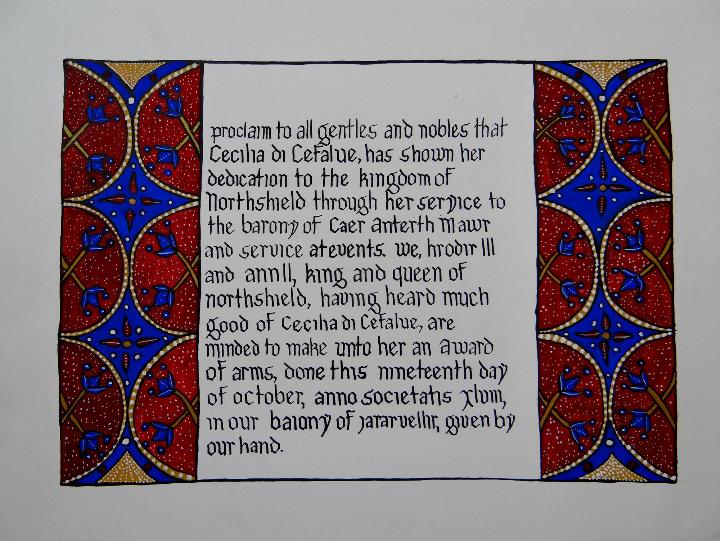 proclaim to all gentles and nobles that
Cecilia di Cefalue, has shown her
dedication to the kingdom of
Northshield through her service to
the barony of Caer Anterth Mawr
and service at events. we, hrodir III
and ann II, king and queen of
northshield, having heard much
good of Cecilia di Cefalue, are
minded to make unto her an award
of arms, done this nineteenth day
of october, anno societatis xlviii,
in our barony of jararvellir, given by
our hand.